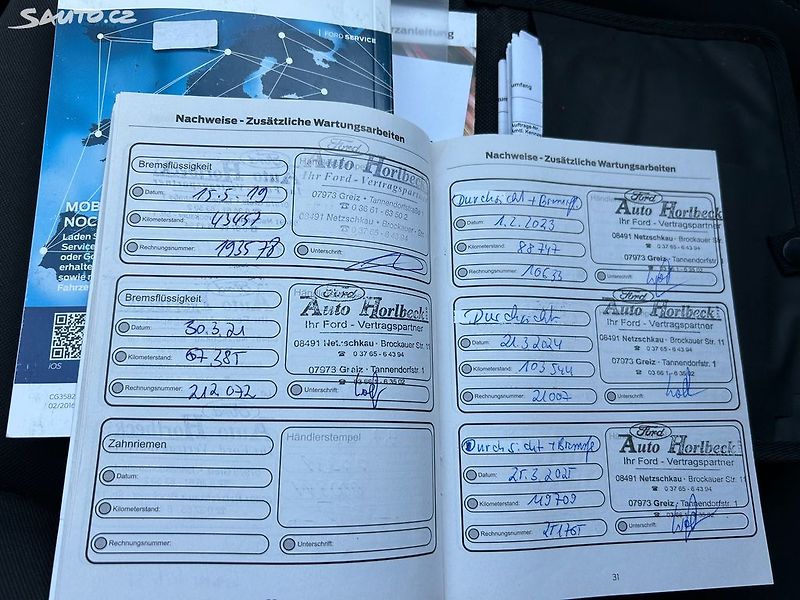 SAUTO.CZ
FORD SERVICE
rzanleitung
umfang
MOB
NOC
Laden S
Service
oder Go
erhalte
sowie r
Fahrze
iOS
CG3582
02/2016
Nachweise - Zusätzliche Wartungsarbeiten
Bremsflüssigkeit
Datum: 15.5.19
Kilometerstand: 43457
Rechnungsnummer: 193578
Ford
Auto Horlbeck
Ihr Ford - Vertragspartner
07973 Greiz · Tannendorfstraße
☎ 0 36 61 - 63 50 2
08491 Netzschkau · Brockauer Str.
☎ 0 37 65
Unterschrift:
Bremsflüssigkeit
Datum: 30.3.21
Kilometerstand: 67.385
Rechnungsnummer: 212072
Ford
Auto Horlbeck
Ihr Ford - Vertragspartner
08491 Netzschkau · Brockauer Str. 11
☎ 0 37 65 - 6 43 94
07973 Greiz · Tannendorfstr. 1
☎ 03 66 1 - 6 35 02
Unterschrift:
Zahnriemen
Datum:
Kilometerstand:
Rechnungsnummer:
Händlerstempel
Unterschrift:
Nachweise - Zusätzliche Wartungsarbeiten
Durchsicht + Bremsfl
Datum: 1.2.2023
Kilometerstand: 88747
Rechnungsnummer: 10633
Ford
Auto Horlbeck
08491 Netzschkau · Brockauer Str.
☎ 0 37 65 - 6 43 94
07973 Greiz · Tannendorfstr. 1
Unterschrift:
Durchsicht
Datum: 21.3.2024
Kilometerstand: 103544
Rechnungsnummer: 21007
Ford
Auto Horlbeck
Ihr Ford - Vertragspartner
08491 Netzschkau · Brockauer Str. 11
☎ 0 37 65 - 6 43 94
07973 Greiz · Tannendorfstr. 1
☎ 03 66 1 - 6 35 02
Unterschrift:
Durchsicht + Bremsfl
Datum: 25.3.2025
Kilometerstand: 119709
Rechnungsnummer: 251765
Ford
Auto Horlbeck
Ihr Ford - Vertragspartner
08491 Netzschkau · Brockauer Str. 11
☎ 0 37 65 - 6 43 94
07973 Greiz · Tannendorfstr. 1
☎ 03 66 1 - 6 35 02
Unterschrift:
31